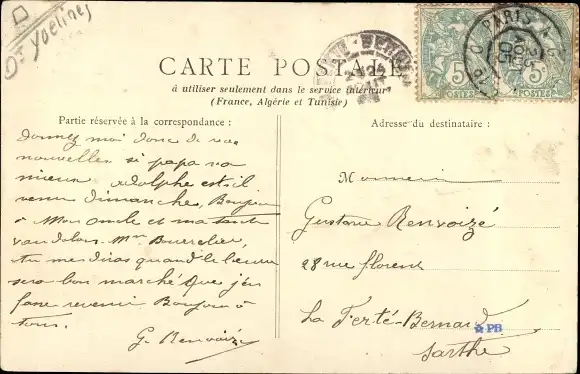 Dt Yvelines
CARTE POSTALE
à utiliser seulement dans le service intérieur
(France, Algérie et Tunisie)
PARIS
05
5
5
POSTES
POSTES
Partie réservée à la correspondance :
donnez moi donc de vos
nouvelles si papa va
mieux Adolphe est-il
venu dimanche, Bonjour
à Mon oncle et ma tante
Mme Bourrelier,
tu me diras quand le beurre
sera bon marché que j'en
fasse revenir Bonjour à
tous.
G. Renvoizé
Adresse du destinataire :
Monsieur
Gustave Renvoizé
28 rue Florent
La Ferté-Bernard
Sarthe
PB